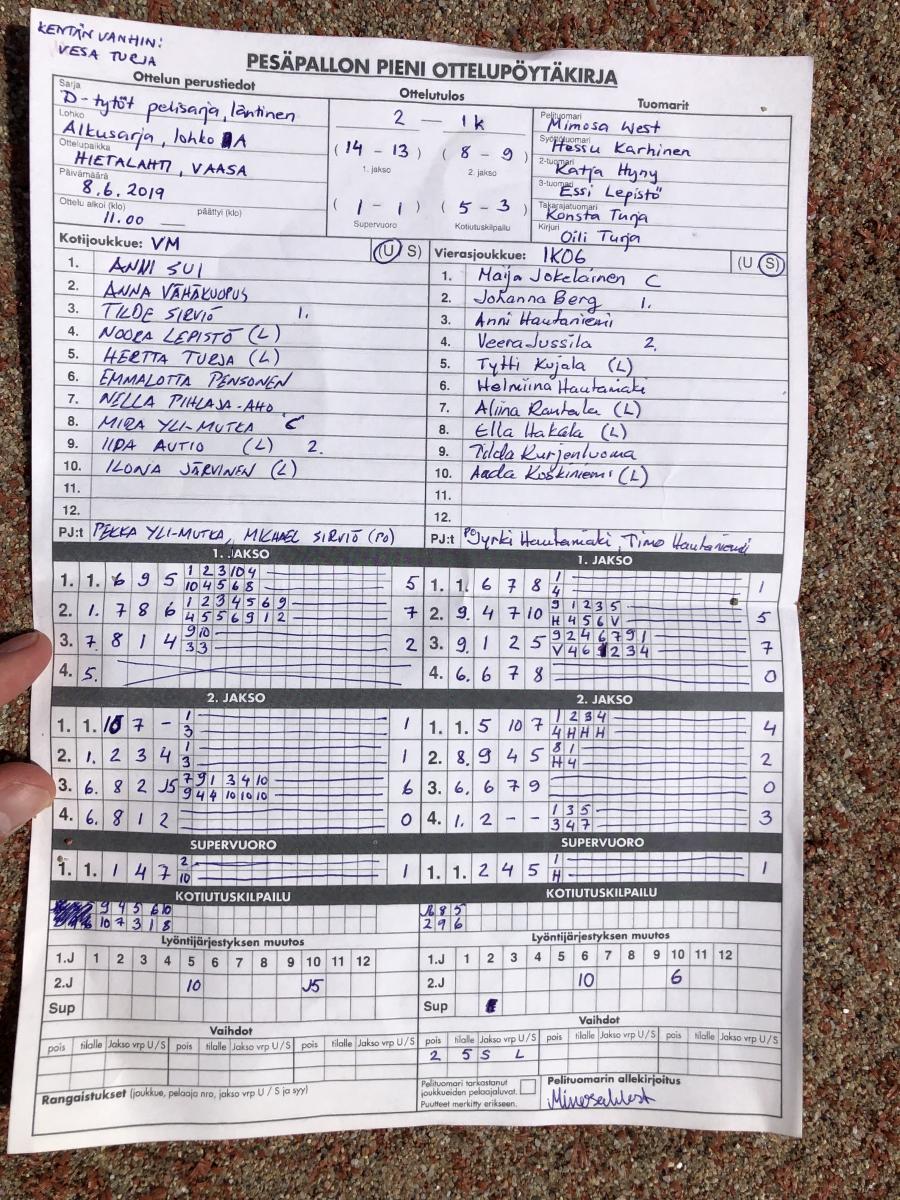 KENTÄN VANHIN:
VESA TURJA
PESÄPALLON PIENI OTTELUPÖYTÄKIRJA
Ottelun perustiedot
Sarja
D-tytöt pelisarja, läntinen
Lohko
Alkusarja, lohko A
Ottelupaikka
HIETALAHTI, VAASA
Päivämäärä
8.6.2019
Ottelu alkoi (klo) päättyi (klo)
11.00
Ottelutulos
2 — 1k
(14 - 13) (8 - 9)
1. jakso 2. jakso
(1 - 1) (5 - 3)
Supervuoro Kotiutuskilpailu
Tuomarit
Pelituomari
Mimosa West
Syöttötuomari
Hessu Karhinen
2-tuomari
Katja Hyny
3-tuomari
Essi Lepistö
Takarajatuomari
Konsta Turja
Kirjuri
Oili Turja
Kotijoukkue: VM (U S)
1. ANNI SUI
2. ANNA VÄHÄKUOPUS
3. TILDE SIRVIÖ 1.
4. NOORA LEPISTÖ (L)
5. HERTTA TURJA (L)
6. EMMALOTTA PENSONEN
7. NELLA PIHLAJA-AHO
8. MIRA YLI-MUTKA C
9. IIDA AUTIO (L) 2.
10. ILONA JÄRVINEN (L)
11.
12.
PJ:t PEKKA YLI-MUTKA, MICHAEL SIRVIÖ (PO)
Vierasjoukkue: IK06 (U S)
1. Maija Jokelainen C
2. Johanna Berg 1.
3. Anni Hautaniemi
4. Veera Jussila 2.
5. Tytti Kujala (L)
6. Helmiina Hautamäki
7. Aliina Rantala (L)
8. Ella Hakala (L)
9. Tilda Kurjenluoma
10. Aada Koskiniemi (L)
11.
12.
PJ:t PO Jyrki Hautamäki, Timo Hautaniemi
1. JAKSO
1. 1. 6 9 5 1 2 3 10 4 5
10 4 5 6 8
2. 1. 7 8 6 1 2 3 4 5 6 9 7
4 5 5 6 9 1 2
3. 7. 8 1 4 9 10 2
3 3
4. 5.
1. JAKSO
1. 1. 6 7 8 1 1
4
2. 9. 4 7 10 9 1 2 3 5 5
H 4 5 6 V
3. 9. 1 2 5 9 2 4 6 7 9 1 7
V 4 6 1 2 3 4
4. 6. 6 7 8 0
2. JAKSO
1. 1. 10 7 - 1 1
3
2. 1. 2 3 4 1 1
3
3. 6. 8 2 J5 7 9 1 3 4 10 6
9 4 4 10 10 10
4. 6. 8 1 2 0
2. JAKSO
1. 1. 5 10 7 1 2 3 4 4
4 H H H
2. 8. 9 4 5 8 1 2
H 4
3. 6. 6 7 9 0
4. 1. 2 - - 1 3 5 3
3 4 7
SUPERVUORO
1. 1. 1 4 7 2 1
10
SUPERVUORO
1. 1. 2 4 5 1 1
H
KOTIUTUSKILPAILU
9 4 5 6 10
10 7 3 1 8
KOTIUTUSKILPAILU
8 5
2 9 6
Lyöntijärjestyksen muutos
1.J 1 2 3 4 5 6 7 8 9 10 11 12
2.J 10 J5
Sup
Lyöntijärjestyksen muutos
1.J 1 2 3 4 5 6 7 8 9 10 11 12
2.J 10 6
Sup
Vaihdot
pois tilalle Jakso vrp U / S pois tilalle Jakso vrp U / S pois tilalle Jakso vrp U / S
Vaihdot
pois tilalle Jakso vrp U / S pois tilalle Jakso vrp U / S
2 5 S L
Rangaistukset (joukkue, pelaaja nro, jakso vrp U / S ja syy)
Pelituomari tarkastanut
joukkueiden pelaajaluvat.
Puutteet merkitty erikseen.
Pelituomarin allekirjoitus
Mimosa West